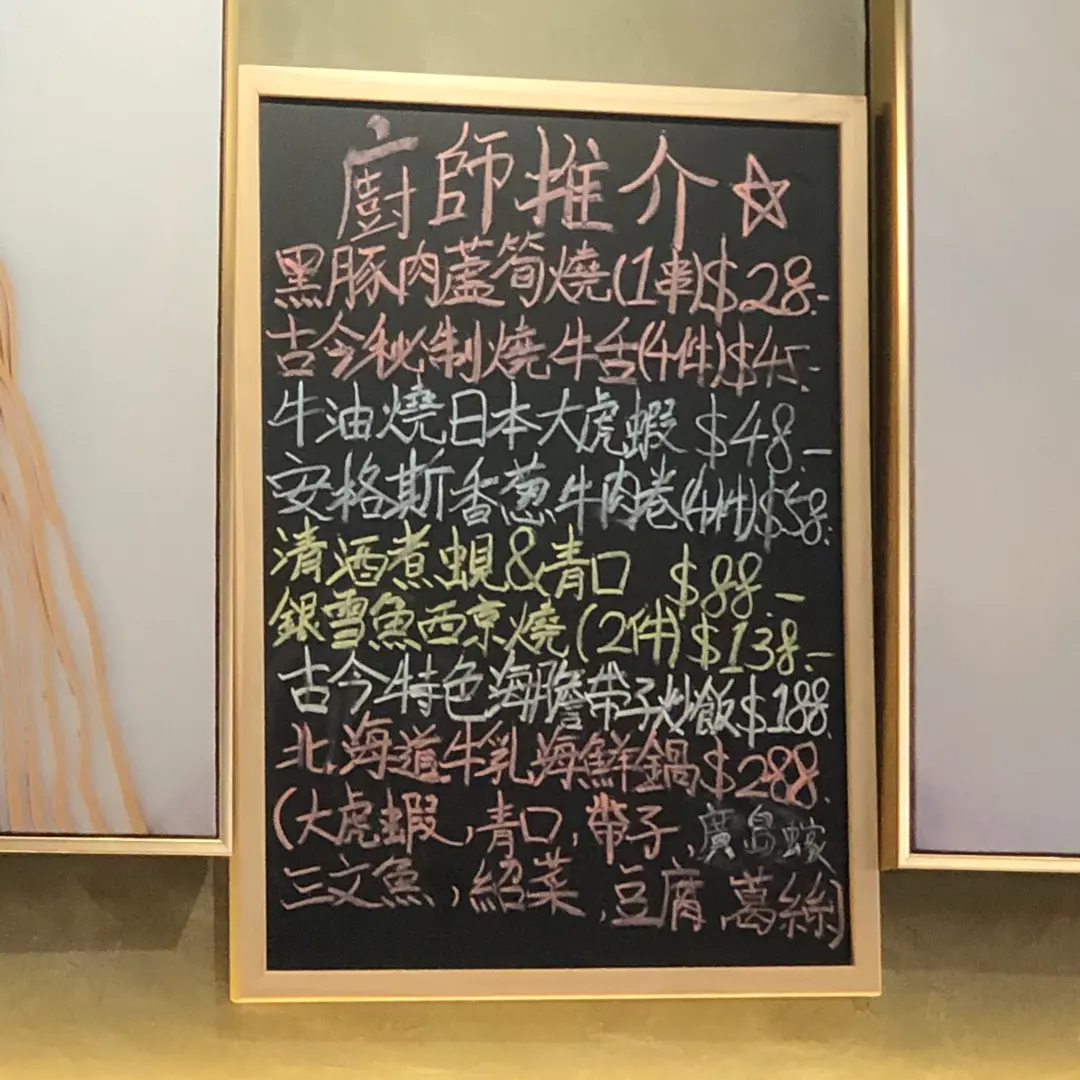 廚師推介☆
黑豚肉蘆筍燒(1串)$28.-
古今秘制燒牛舌(4件)$45.-
牛油燒日本大虎蝦 $48.-
安格斯香葱牛肉卷(4件)$58.
清酒煮蜆&青口 $88.-
銀雪魚西京燒(2件)$138.-
古今特色海膽帶子炒飯$188.
北海道牛乳海鮮鍋$288.
(大虎蝦,青口,帶子,廣島蠔
三文魚,紹菜,豆腐,葛絲)